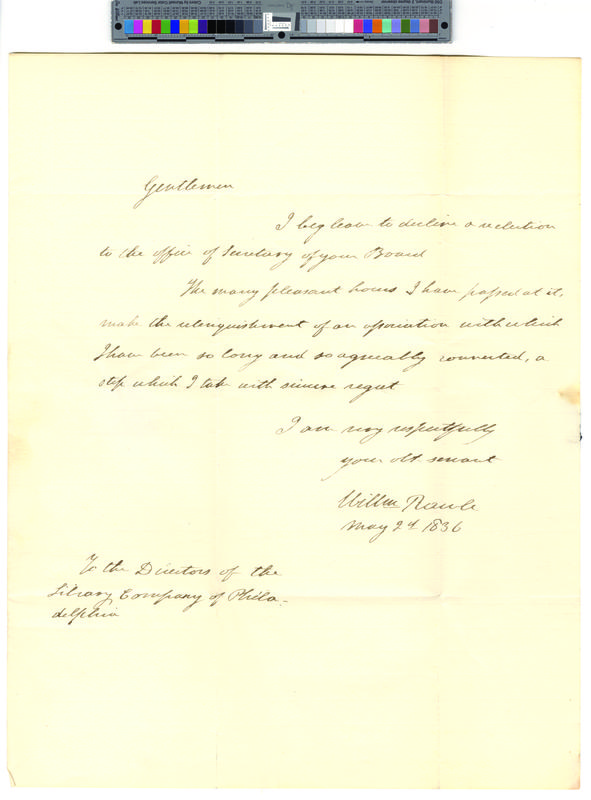 Gentlemen
I beg leave to decline a reelection
to the office of Secretary of your Board
The many pleasant hours I have passed at it,
make the relinquishment of an association with which
I have been so long and so agreeably connected, a
step which I take with sincere regret
I am very respectfully
your obt servant
Willm Rawle
May 2d 1836
To the Directors of the
Library Company of Phila-
delphia